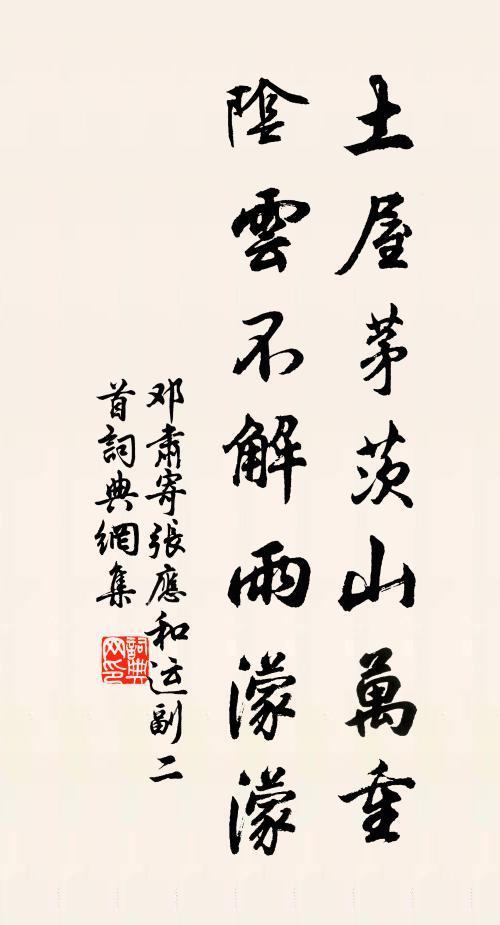 土屋茅茨山萬重
陰雲不解雨濛濛
邓肅寄張應和运副二
首詞典網集
詞典
网印